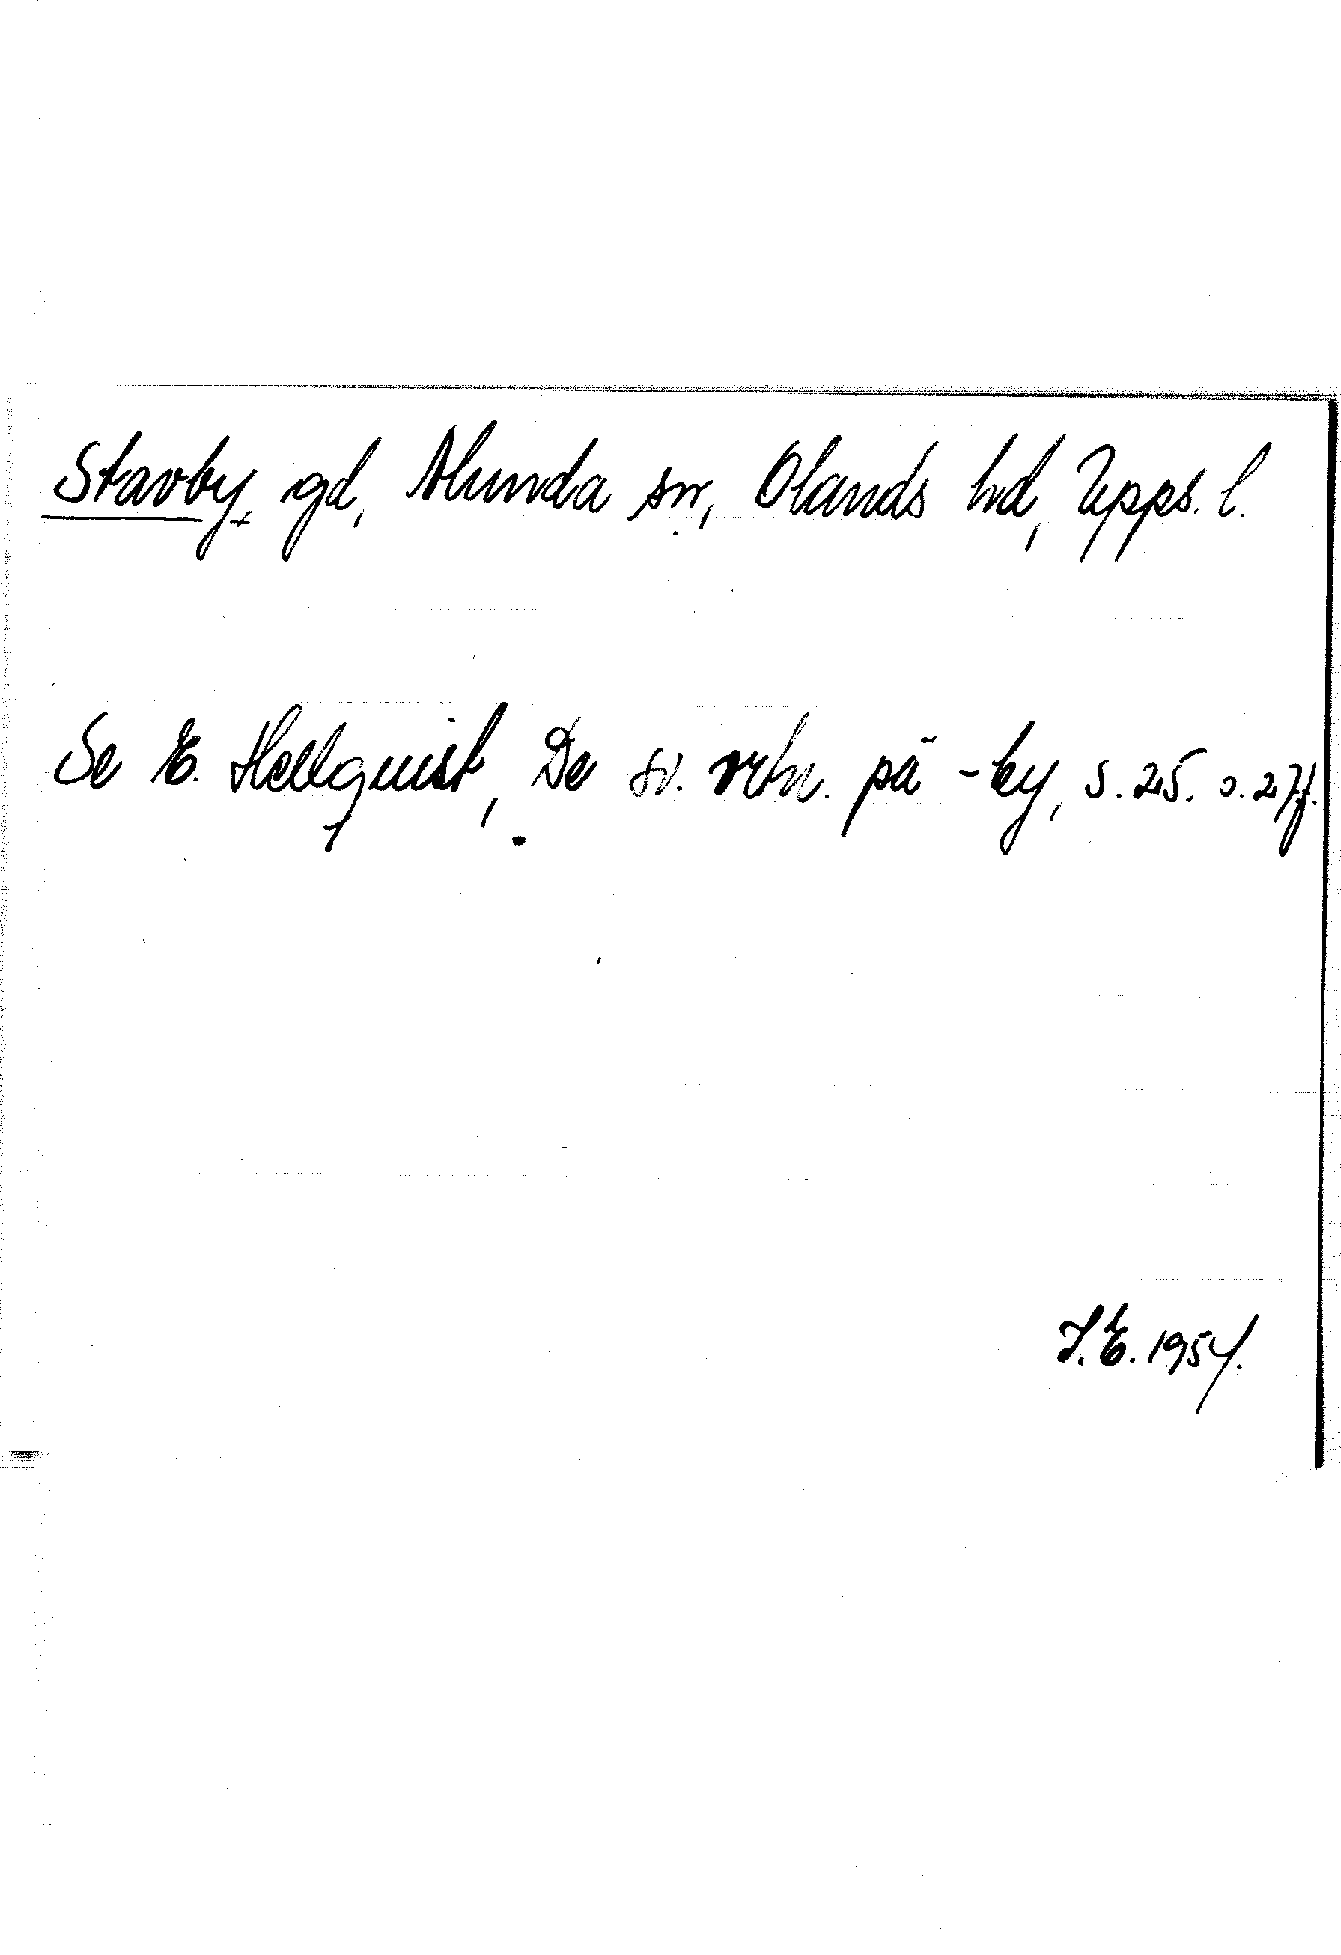 Stavby, gd, Alunda sn, Olands hd, Upps. l.
Se E. Hellquist, De sv. ortn. på -by, s. 25. o. 27f.
J.E. 1954.